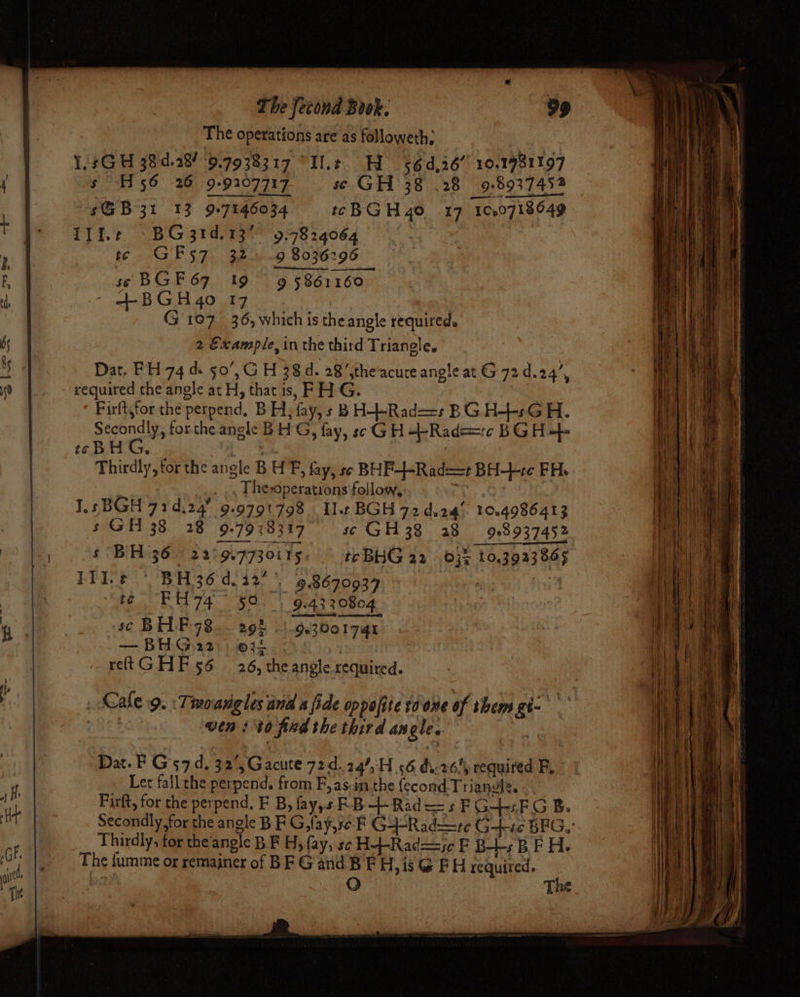 The ſecond Book. 99
The operations are as followeth,
I. s G H 38 d. 28' 9.7938317 II. t. H 56 d. 26' 10.1781197
s H 56 26 9.9207717 sc GH 38 28 9.8937452
s G B 31 13 9.7146034 tc B G H 40 17 10.0718649
III. t B G 31 d. 13' 9.7824064
tc G F 57 32 9 8036296
sc B G F 67 19 9 5861160
+ B G H 40 17
G 107 36, which is the angle required.
2 Example, in the third Triangle.
Dat. F H 74 d. 50', G H 38 d. 28', the acute angle at G 72 d. 24',
required the angle at H, that is, F H G.
Firſt, for the perpend. B H, ſay, s B H+Rad==s B G H+s G H.
Secondly, for the angle B H G, ſay, sc G H+Rad==tc B G H+
tc B H G.
Thirdly, for the angle B H F, ſay, sc BHF+Rad==t BH+tc FH.
The operations follow,
I. s BGH 72 d. 24' 9.9791798 II. t BGH 72 d. 24' 10.4986413
s G H 38 28 9.7938317 sc G H 38 28 9.8937452
s B H 36 22 9.7730115 tc BHG 22 03½ 10.3923865
III. t B H 36 d. 22' 9.8670937
tc F H 74 50 9.4330804
sc B H F 78 29½ 9.3001741
— B H G 22 03½
reſt G H F 56 26, the angle required.
Caſe 9. Two angles and a ſide oppoſite to one of them gi-
ven : to find the third angle.
Dat. F G 57 d. 32', G acute 72 d. 24', H 56 d. 26', required F.
Let fall the perpend. from F, as in the ſecond Triangle.
Firſt, for the perpend. F B, ſay, s F B+Rad==s F G+s F G B.
Secondly, for the angle B F G, ſay, sc F G+Rad==tc G+tc BFG.
Thirdly, for the angle B F H, ſay, sc H+Rad==sc F B+s B F H.
The ſumme or remainer of B F G and B F H, is G F H required.
O The